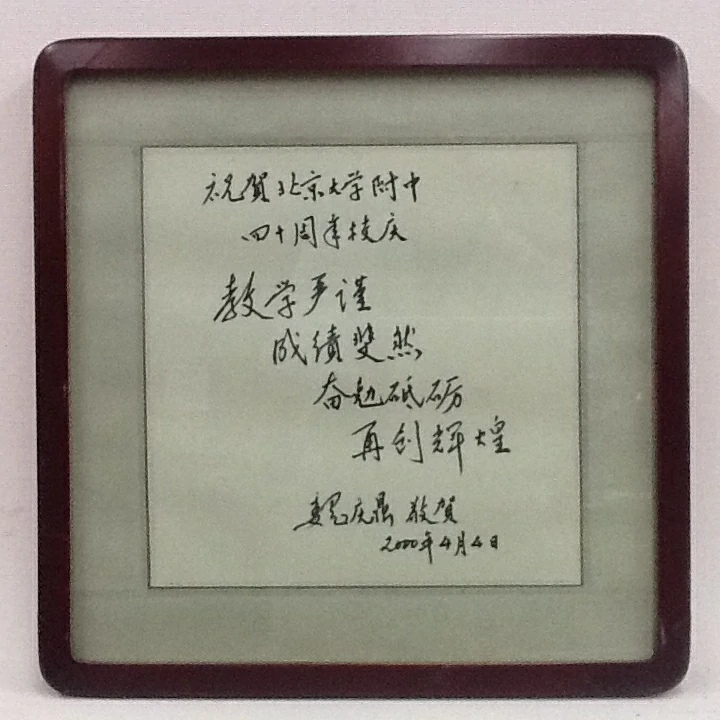 祝贺北京大学附中
四十周年校庆
教学严谨
成绩斐然
奋勉砥砺
再创辉煌
魏庆鼎 敬贺
2000年4月4日